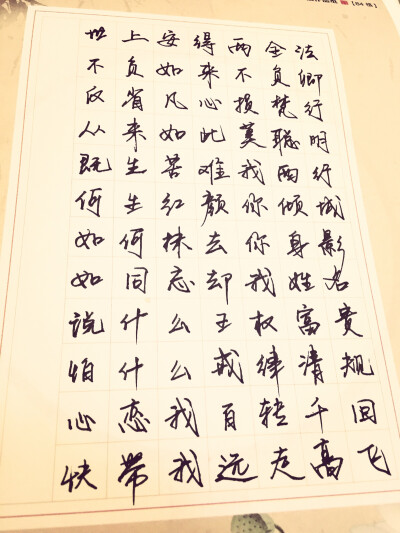 世上安得两全法
不负如来不负卿
反省凡心损梵行
从来如此莫聪明
既生苦难我西行
何生红颜你倾城
如何抹去你身影
如同忘却我姓名
说什么王权富贵
怕什么戒律清规
心恋我百转千回
快带我远走高飞